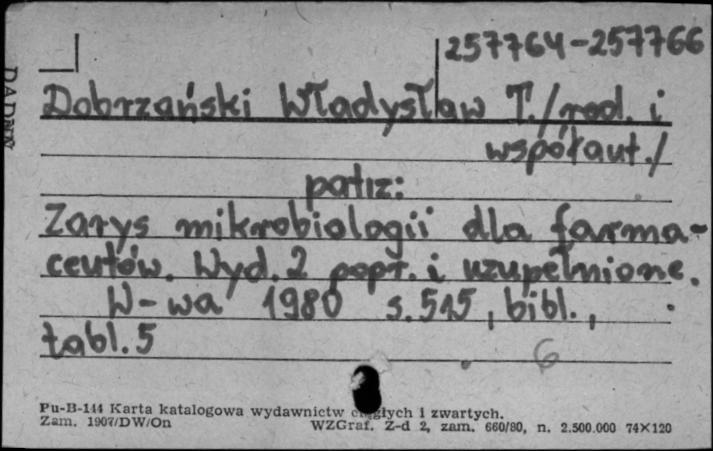 257764-257766
Dobrzański Władysław T./red. i
współaut./
patrz:
Zarys mikrobiologii dla farma-
ceutów. Wyd. 2 popr. i uzupełnione.
W-wa 1980 s. 515, bibl.,
tabl. 5
6
Pu-B-144 Karta katalogowa wydawnictw ciągłych i zwartych.
Zam. 1907/DW/On WZGraf. Z-d 2, zam. 660/80, n. 2.500.000 74×120